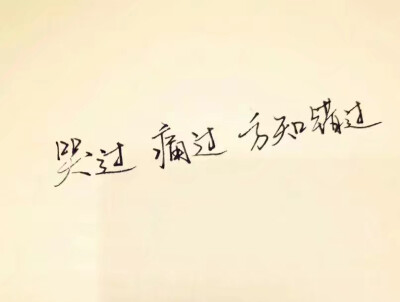 哭过 痛过 方知错过